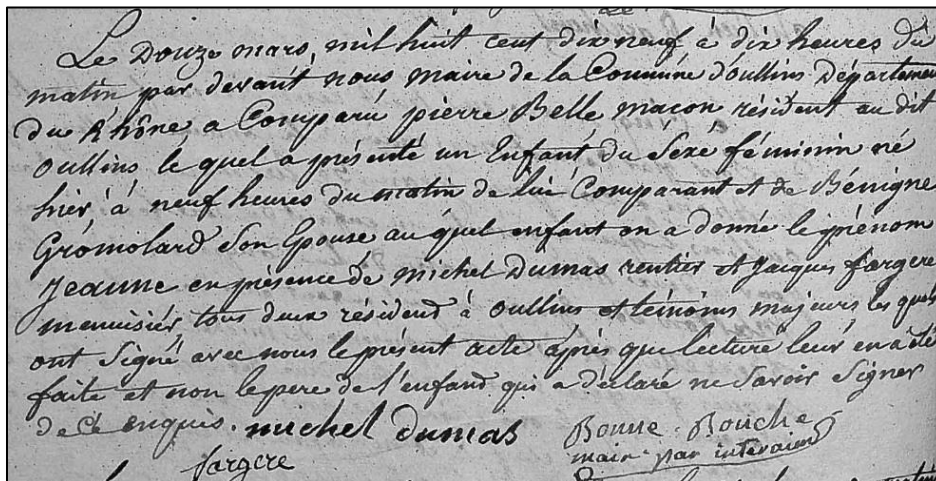 Le Douze mars, mil huit cent dix neuf à dix heures du
matin par devant nous maire de la Commune d'oullins Département
du Rhône a Comparu pierre Belle maçon résident au dit
oullins le quel a présenté un Enfant du Sexe féminin né
hier à neuf heures du matin de lui Comparant et de Bénigne
Gromolard Son Epouse au quel enfant on a donné le prénom
Jeanne en présence de michel Dumas rentier et Jacques fargere
menuisier tous deux résidend à oullins et témoins majeurs les quels
ont Signé avec nous le présent acte après que lecture leur en a été
faite et non le pere de l'enfant qui a déclaré ne Savoir Signer
de Ce enquis. michel dumas Bonne-Bouche
fargere mair par interaim